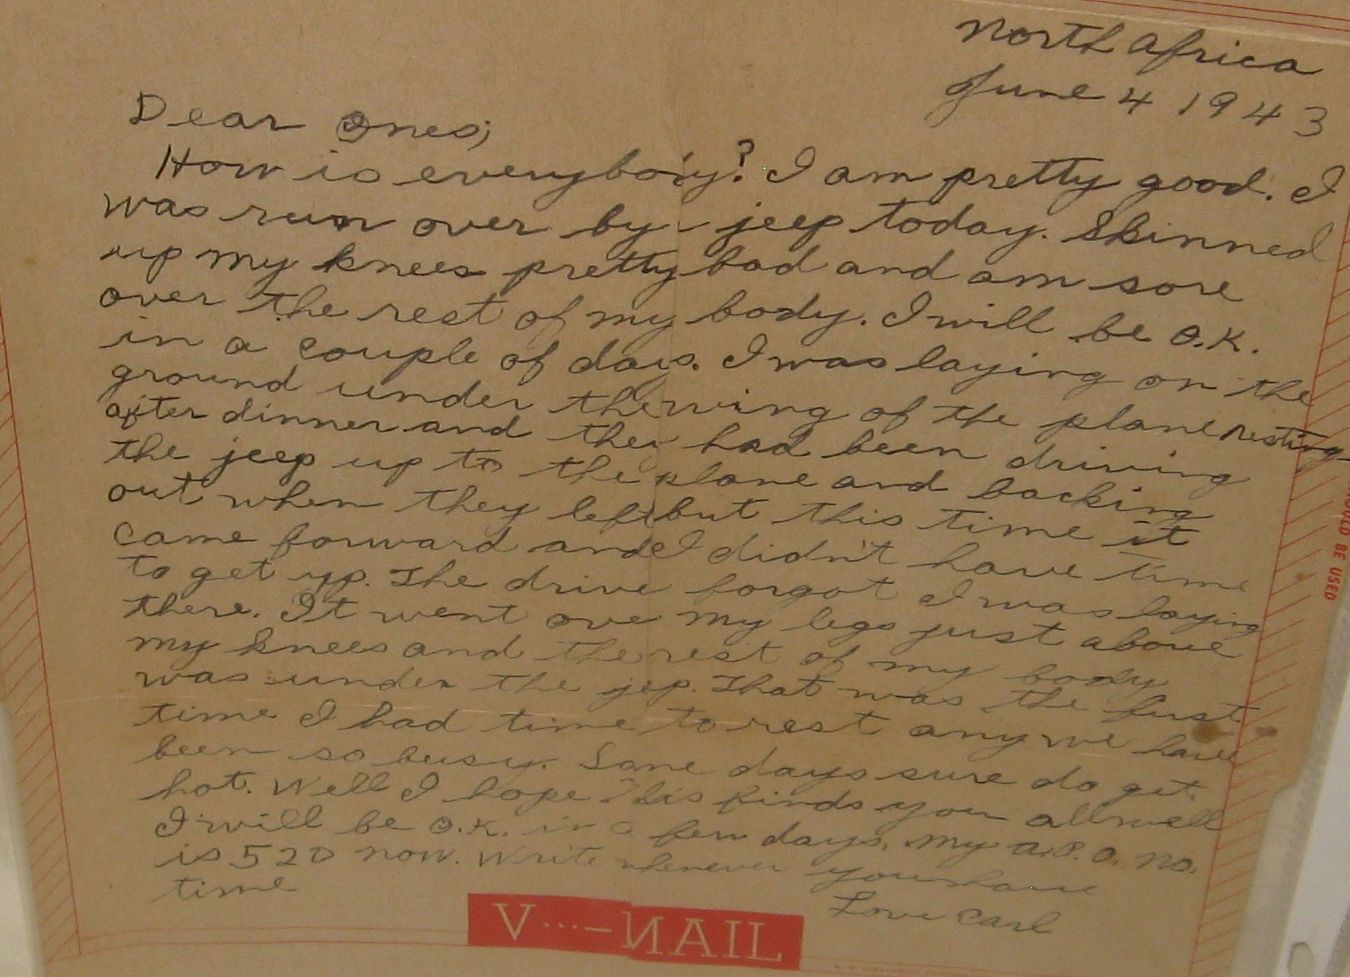 North Africa
June 4 1943
Dear Ones;
How is everybody? I am pretty good. I
was run over by jeep today. Skinned
up my knees pretty bad and am sore
over the rest of my body. I will be O.K.
in a couple of days. I was laying on the
ground under the wing of the plane resting
after dinner and they had been driving
the jeep up to the plane and backing
out when they left but this time it
came forward and I didn't have time
to get up. The drive forgot I was laying
there. It went ove my legs just above
my knees and the rest of my body
was under the jep. That was the first
time I had time to rest any we have
been so busy. Some days sure do get
hot. Well I hope this finds you all well
I will be O.K. in a few days. My A.P.O. no.
is 520 now. Write whenever you have
time
Love Carl
V···—MAIL
OULD BE USED